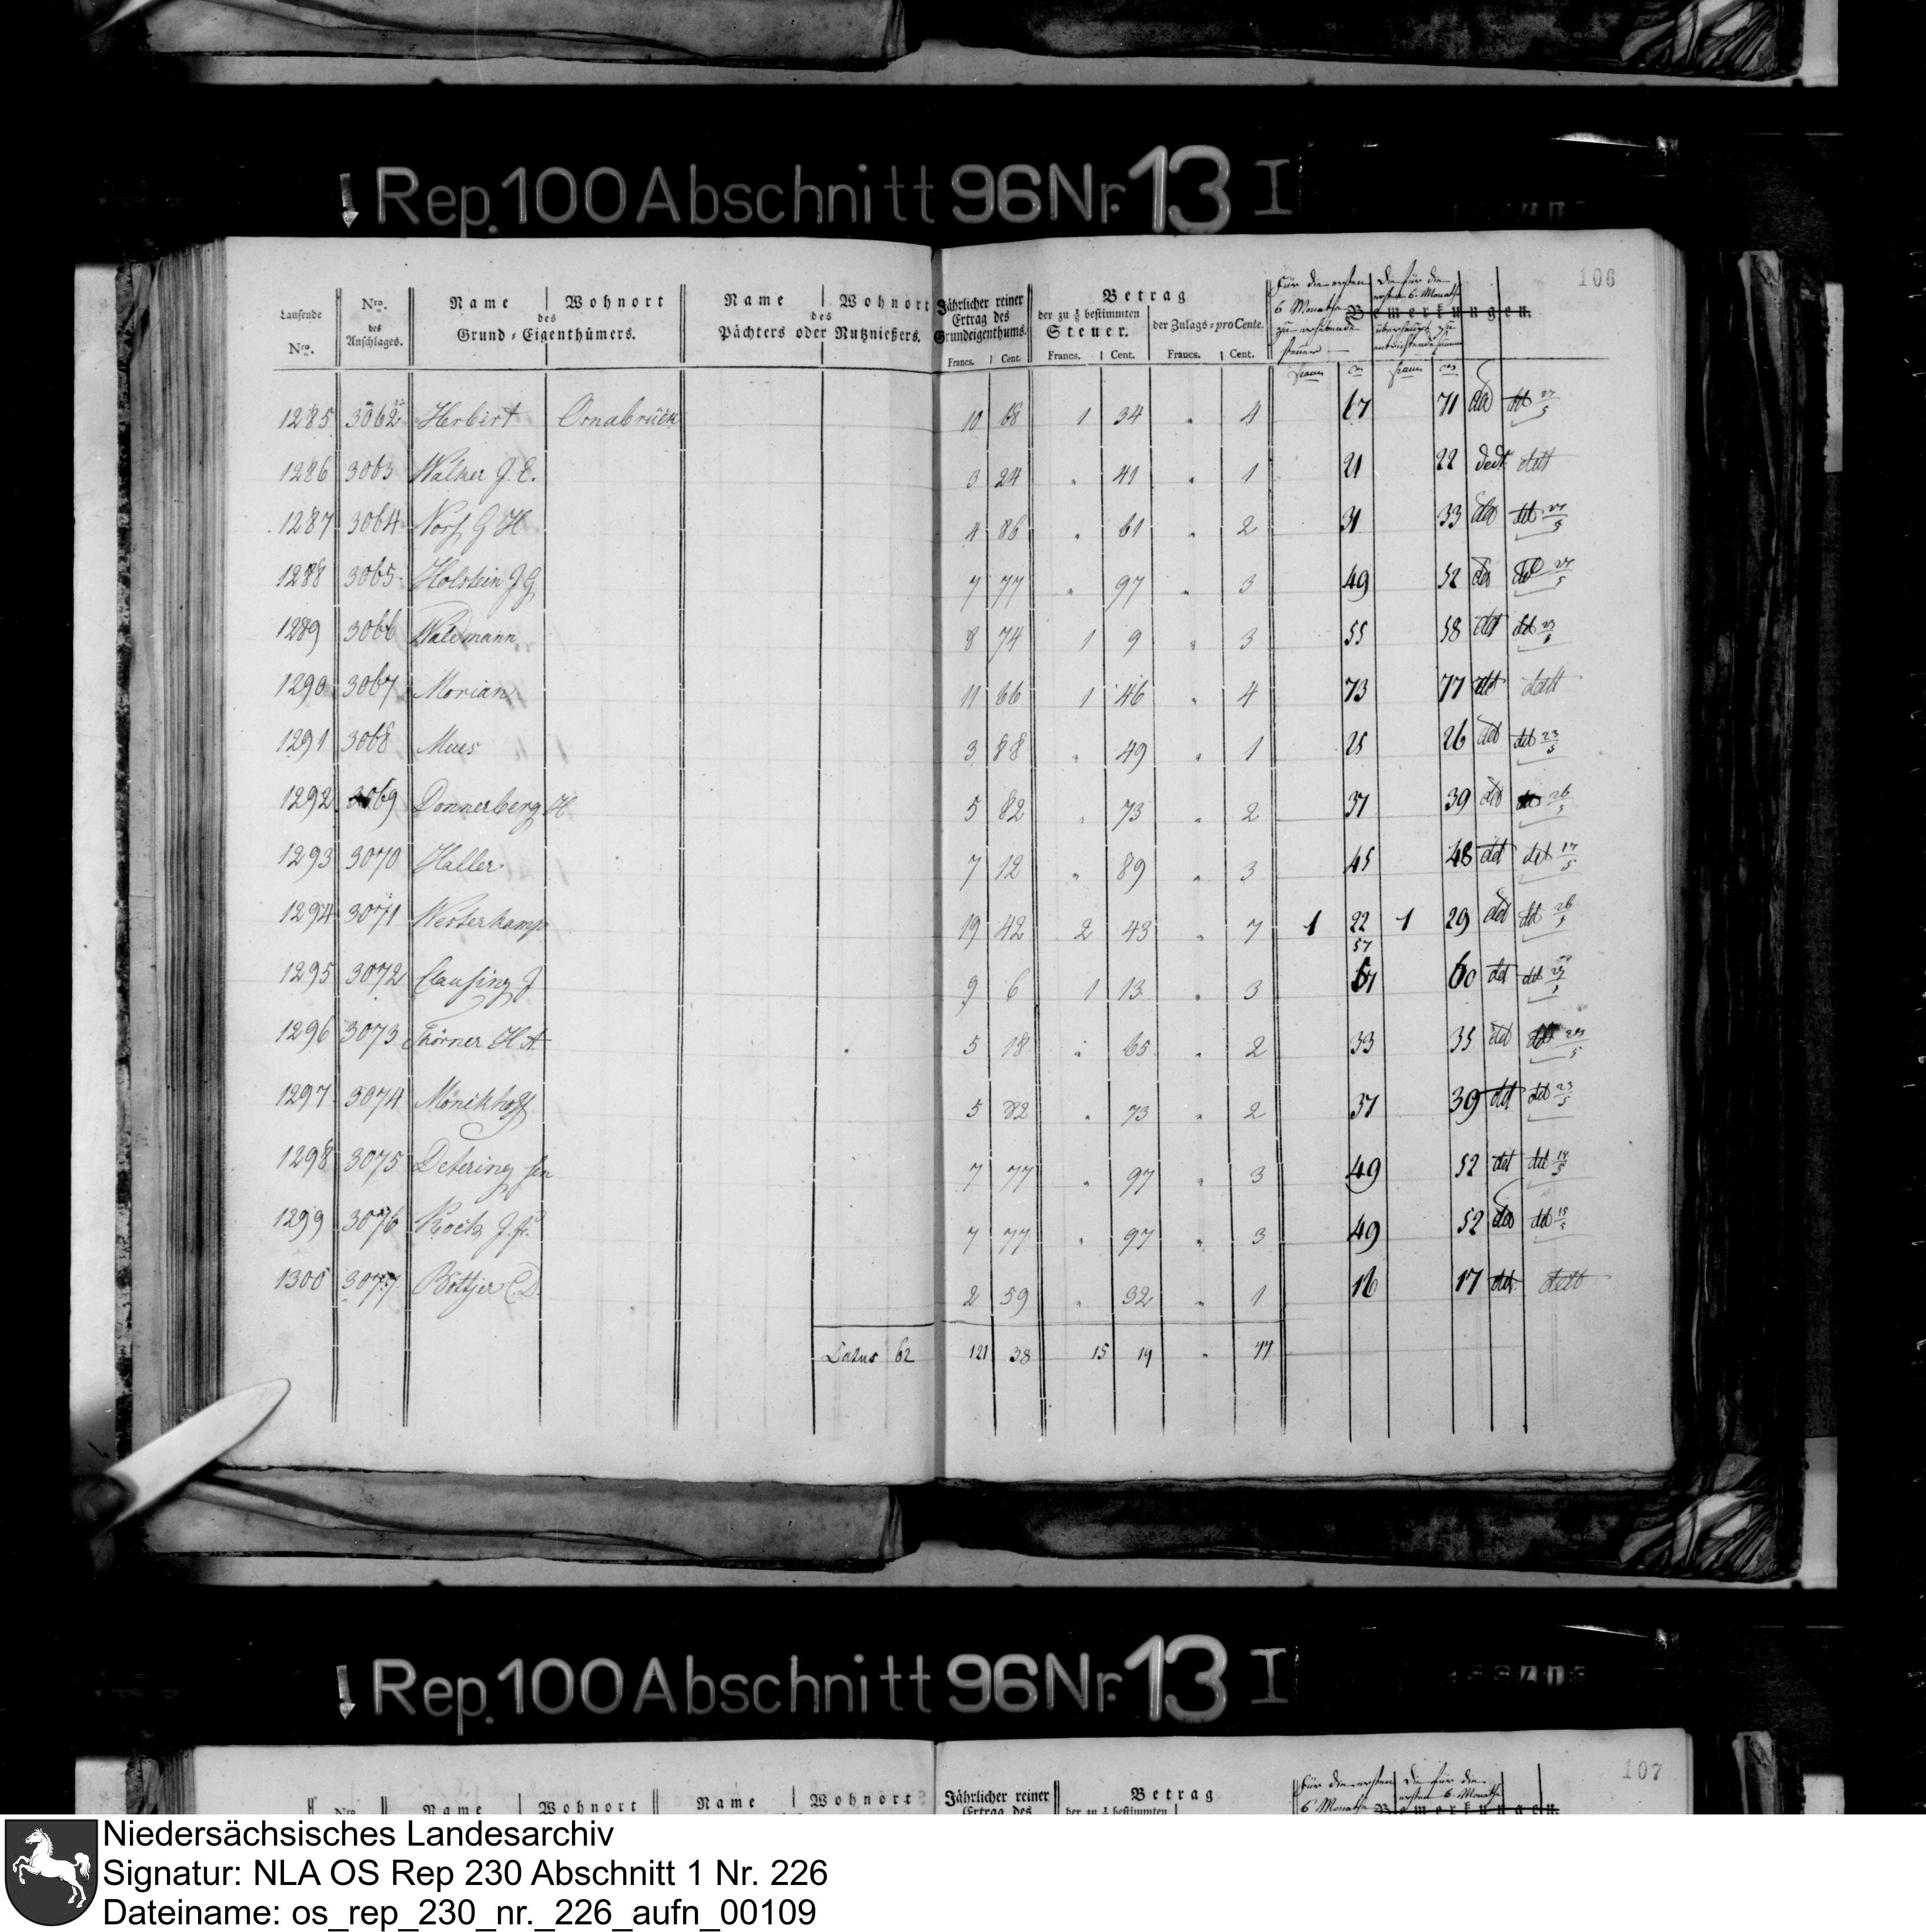 Rep. 100 Abschnitt 96 Nr. 13 I
106
Laufende Nro.
Nro. des Anschlages.
Name des Grund-Eigenthümers. Wohnort
Name des Pächters oder Nutznießers. Wohnort
Jährlicher reiner Ertrag des Grundeigenthums. Francs. Cent.
Betrag
der zu ⅛ bestimmten Steuer. Francs. Cent.
der Zulags-pro Cente. Francs. Cent.
Bemerkungen.
Für die ersten 6 Monathe zu erhebende Steuer
Die für die ersten 6. Monathe überhaupt zu entrichtende Summe
1285 3062 Herbert Osnabrück 10 68 1 34 " 4 67 71 27/5
1286 3063 Walker J. E. 3 24 " 41 " 1 21 22 dedt dett
1287 3064 G H 4 86 " 61 " 2 31 33 det
1288 3065 Holstein J G 7 77 " 97 " 3 49 52
1289 3066 Waldmann 8 74 1 9 " 3 55 58 det det
1290 3067 Morian 11 66 1 46 " 4 73 77 det dett
1291 3068 Mues 3 88 " 49 " 1 25 26 det det 23/5
1292 3069 Donnerberg H 5 82 " 73 " 2 37 39 det 26/5
1293 3070 Haller 7 12 " 89 " 3 45 48 det det 17/5
1294 3071 Westerkamp 19 42 2 43 " 7 1 22 1 29 det det 26/5
1295 3072 Clausing J 9 6 1 13 " 3 57 60 det det
1296 3073 Thörner H A 5 18 " 65 " 2 33 35 det
1297 3074 Mönckhoff 5 82 " 73 " 2 37 39 det det 23/5
1298 3075 Detering sen 7 77 " 97 " 3 49 52 det det 18/5
1299 3076 Kock J. 7 77 " 97 " 3 49 52 det 18/5
1300 3077 Böttjer C. D. 2 59 " 32 " 1 16 17 det dett
Latus 62 121 38 15 19 " 44
Rep. 100 Abschnitt 96 Nr. 13 I
107
Nro. Name Wohnort Name Wohnort Jährlicher reiner Ertrag des Betrag der zu ⅛ bestimmten
Für die ersten 6 Monathe Die für die ersten 6. Monathe Bemerkungen.
Niedersächsisches Landesarchiv
Signatur: NLA OS Rep 230 Abschnitt 1 Nr. 226
Dateiname: os_rep_230_nr._226_aufn_00109